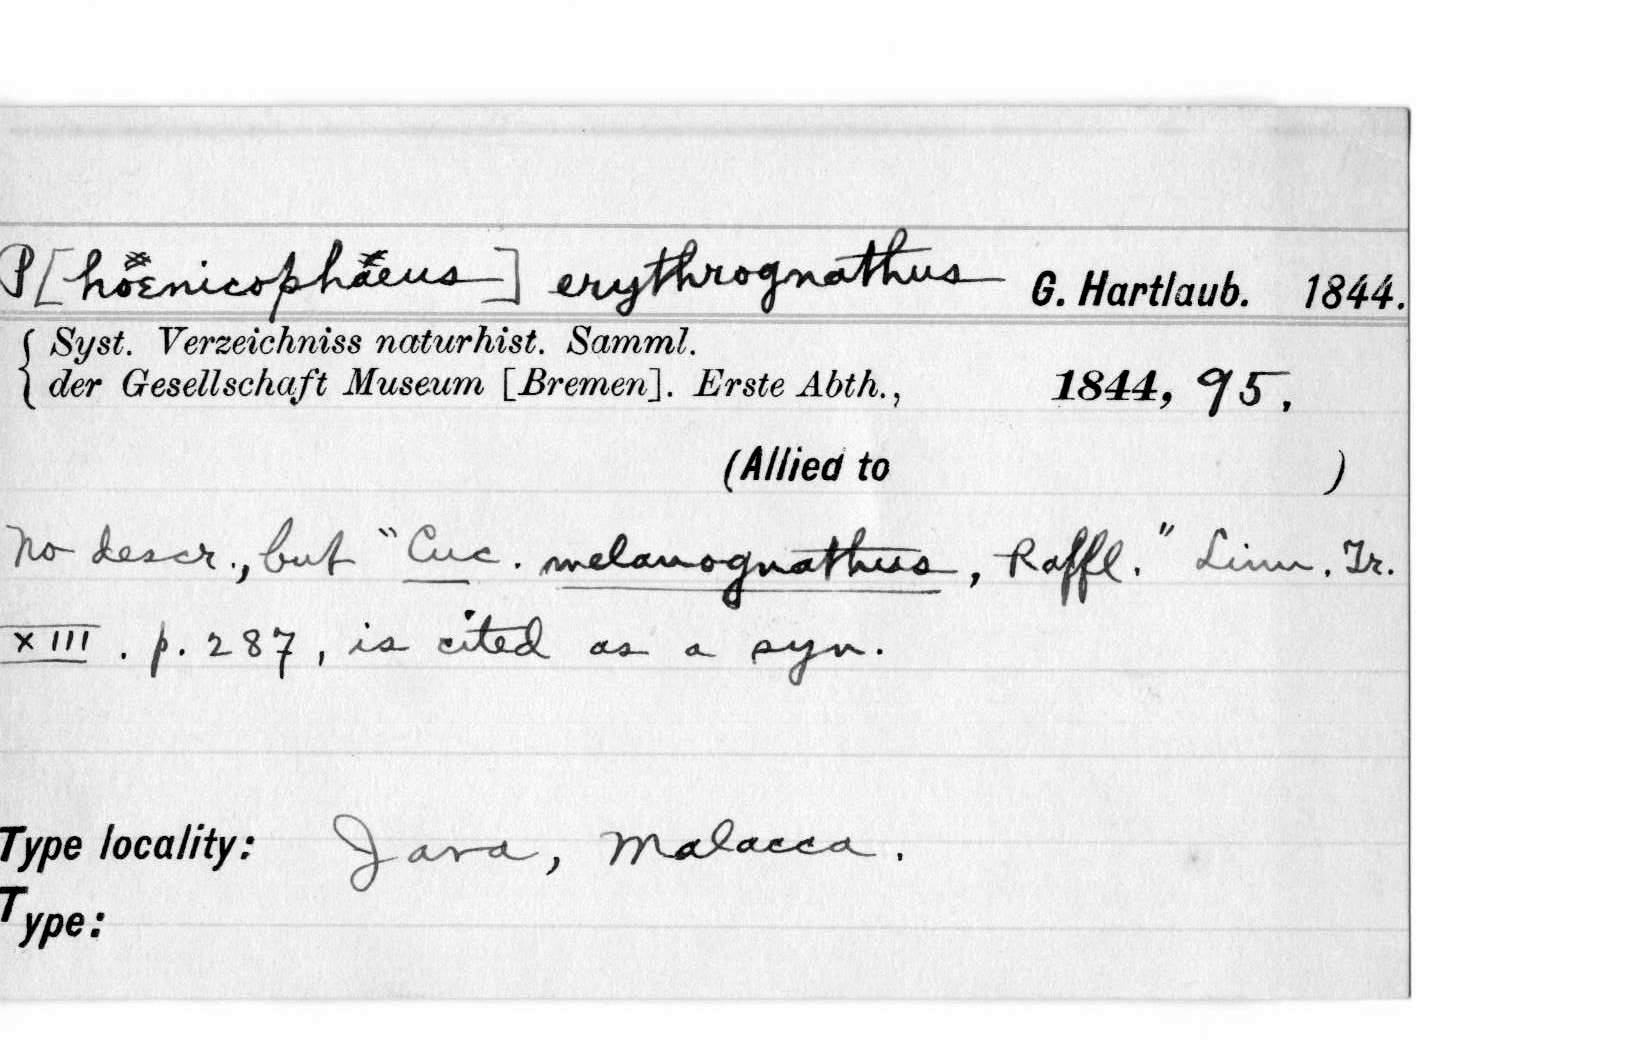 P[hoenicophaeus] erythrognathus G. Hartlaub. 1844.
Syst. Verzeichniss naturhist. Samml.
der Gesellschaft Museum [Bremen]. Erste Abth., 1844, 95.
(Allied to )
No descr., but "Cuc. melanognathus, Raffl." Linn. Tr.
XIII. p. 287, is cited as a syn.
Type locality: Java, Malacca.
Type: